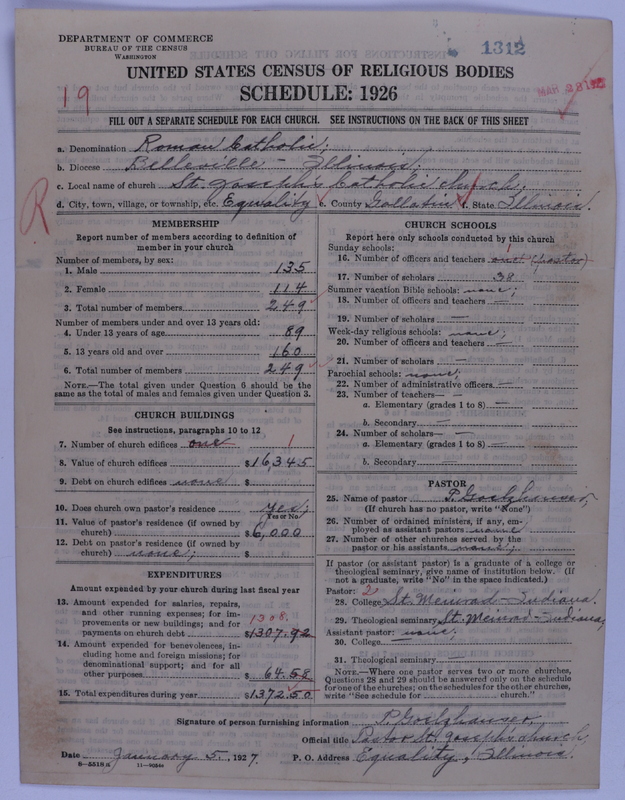 DEPARTMENT OF COMMERCE
BUREAU OF THE CENSUS
WASHINGTON
1312
UNITED STATES CENSUS OF RELIGIOUS BODIES
SCHEDULE: 1926
19
FILL OUT A SEPARATE SCHEDULE FOR EACH CHURCH. SEE INSTRUCTIONS ON THE BACK OF THIS SHEET
a. Denomination Roman Catholic;
b. Diocese Belleville - Illinois;
c. Local name of church St. Joseph's Catholic church;
d. City, town, village, or township, etc. Equality e. County Gallatin f. State Illinois.
R
MEMBERSHIP
Report number of members according to definition of
member in your church
Number of members, by sex:
1. Male 135
2. Female 114
3. Total number of members 249
Number of members under and over 13 years old:
4. Under 13 years of age 89
5. 13 years old and over 160
6. Total number of members 249
NOTE.—The total given under Question 6 should be
same as the total of males and females given under Question 3.
CHURCH BUILDINGS
See instructions, paragraphs 10 to 12
7. Number of church edifices one 1
8. Value of church edifices $16,345
9. Debt on church edifices none $
10. Does church own pastor's residence Yes;
Yes or No
11. Value of pastor's residence (if owned by
church) $6,000
12. Debt on pastor's residence (if owned by
church) none; $
EXPENDITURES
Amount expended by your church during last fiscal year
13. Amount expended for salaries, repairs,
and other running expenses; for im-
provements or new buildings; and for
payments on church debt 1308. $1307.92
14. Amount expended for benevolences, in-
cluding home and foreign missions; for
denominational support; and for all
other purposes $64.58
15. Total expenditures during year $1372.50
CHURCH SCHOOLS
Report here only schools conducted by this church
Sunday schools:
16. Number of officers and teachers one (pastor) 1
17. Number of scholars 38
Summer vacation Bible schools: none;
18. Number of officers and teachers —
19. Number of scholars —
Week-day religious schools: none;
20. Number of officers and teachers —
21. Number of scholars —
Parochial schools: none;
22. Number of administrative officers —
23. Number of teachers— —
a. Elementary (grades 1 to 8) —
b. Secondary —
24. Number of scholars— —
a. Elementary (grades 1 to 8) —
b. Secondary —
PASTOR
25. Name of pastor P. Goelzhauser,
(If church has no pastor, write "None")
26. Number of ordained ministers, if any, em-
ployed as assistant pastors none
27. Number of other churches served by the
pastor or his assistants none;
If pastor (or assistant pastor) is a graduate of a college or
theological seminary, give name of institution below. (If
not a graduate, write "No" in the space indicated.)
Pastor: 2
28. College St. Meinrad - Indiana.
29. Theological seminary St. Meinrad - Indiana;
Assistant pastor: none;
30. College —
31. Theological seminary
NOTE.—Where one pastor serves two or more churches,
Questions 28 and 29 should be answered only on the schedule
for one of the churches; on the schedules for the other churches,
write "See schedule for church."
Signature of person furnishing information P. Goelzhauser,
Official title Pastor St. Joseph's church,
Date January 5, 1927. P. O. Address Equality, Illinois.